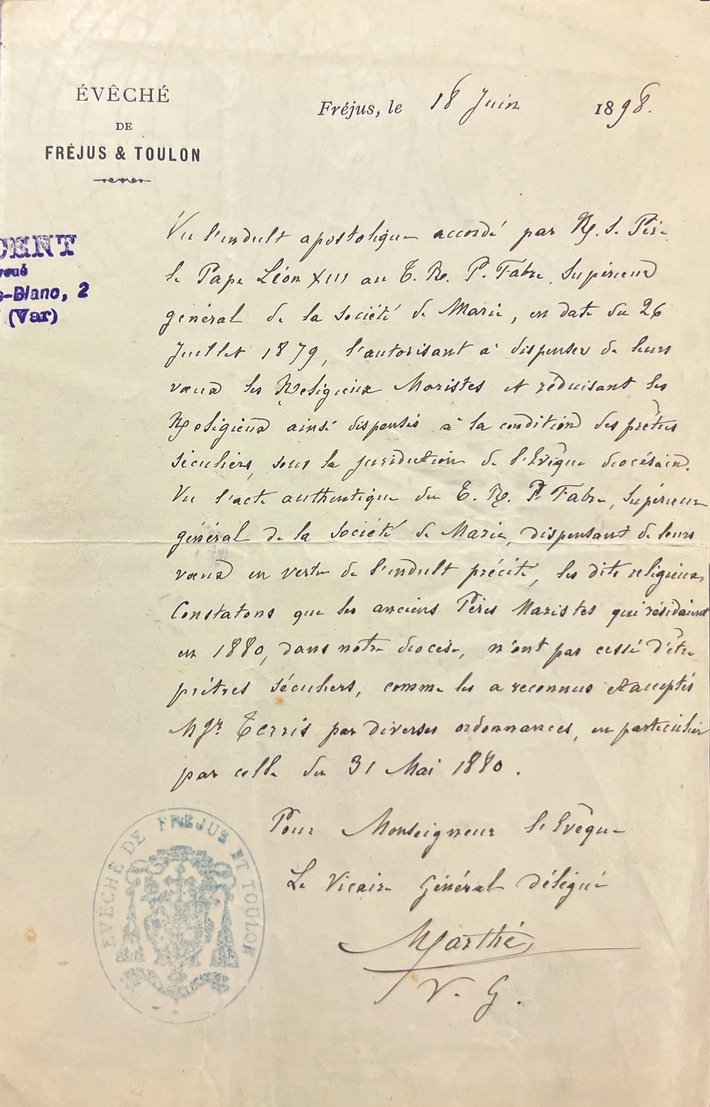 ÉVÊCHÉ
DE
FRÉJUS & TOULON
Fréjus, le 18 Juin 1898.
CENT
voué
-Blanc, 2
(Var)
Vu l'indult apostolique accordé par N. S. Père
le Pape Léon XIII au T. R. P. Fabre, Supérieur
général de la société de Marie, en date du 26
Juillet 1879, l'autorisant à dispenser de leurs
vœux les Religieux Maristes et réduisant les
Religieux ainsi dispensés à la condition des prêtres
séculiers, sous la juridiction de l'Evêque diocésain.
Vu l'acte authentique du T. R. P. Fabre, supérieur
général de la société de Marie, dispensant de leurs
vœux en vertu de l'indult précité, les dits religieux
Constatons que les anciens Pères Maristes qui résidaient
en 1880, dans notre diocèse, n'ont pas cessé d'être
prêtres séculiers, comme les a reconnus et acceptés
Mgr Terris par diverses ordonnances, en particulier
par celle du 31 Mai 1880.
Pour Monseigneur l'Evêque
Le Vicaire Général délégué
Marthé
V. G.
ÉVÊCHÉ DE FREJUS ET TOULON